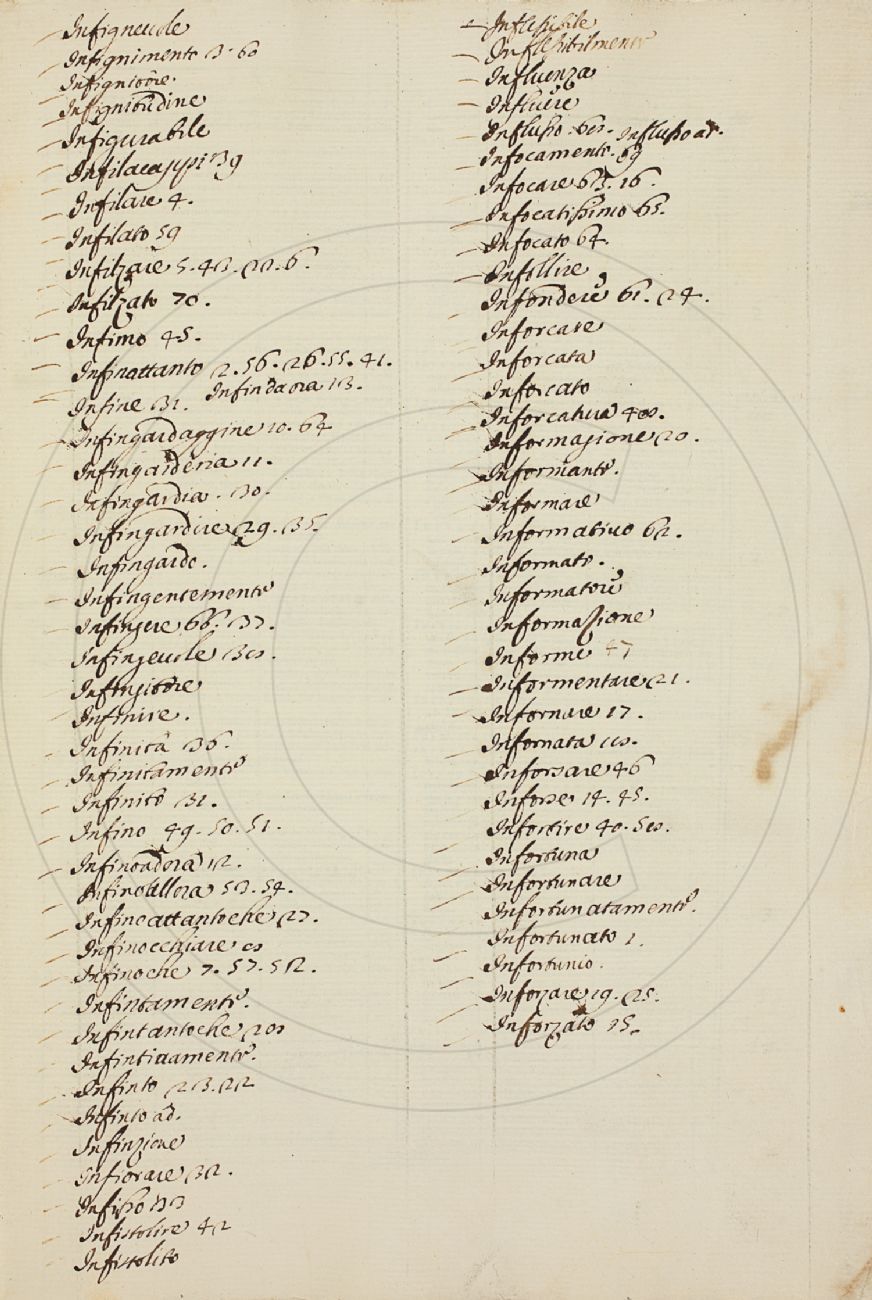 Infigneuole
Infignimento 3. 60
Infignitore.
Infignitudine
Infigurabile
Infilacappi 39
Infilare 4.
Infilato 59
Infilzare 5. 43. 22. 6.
Infilzato 70.
Infimo 45.
Infinattanto 2. 56. 26. 55. 41.
Infine 31. Infindaora 13.
Infingardaggine 10. 64
Infingarderia 11.
Infingardia. 30.
Infingardire 29. 35.
Infingardo.
Infingentemente
Infingere 66. 37.
Infingeuole
Infingitore
Infinire.
Infinità 36.
Infinitamente
Infinito 31.
Infino 49. 50. 51.
Infinoadora 12.
Infinoallora 53. 54.
Infinoattantoche 27.
Infinocchiare
Infinoche 7. 57. 52.
Infintamente.
Infintantoche
Infintiuamente.
Infinto 23. 22
Infinto ad.
Infinzione
Infiorare 32.
Infisso 33
Infistolire 42
Infistolito
Inflessibile
Inflessibilmente
Influenza
Influere
Influsso Influsso ad.
Infocamento. 69
Infocare 63. 16.
Infocatissimo 65.
Infocato 64.
Infollire
Infondere 61. 24.
Inforcare
Inforcata
Inforcato
Inforcatura
Informagione 20.
Informante.
Informare
Informatiuo 62.
Informato.
Informatore
Informazione
Informe 47
Informentare 21.
Infornare 17.
Infornata
Inforsare 46
Inforse 14. 45.
Infortire
Infortuna
Infortunare
Infortunatamente.
Infortunato 1.
Infortunio.
Inforzare 19. 25.
Inforzato 15.